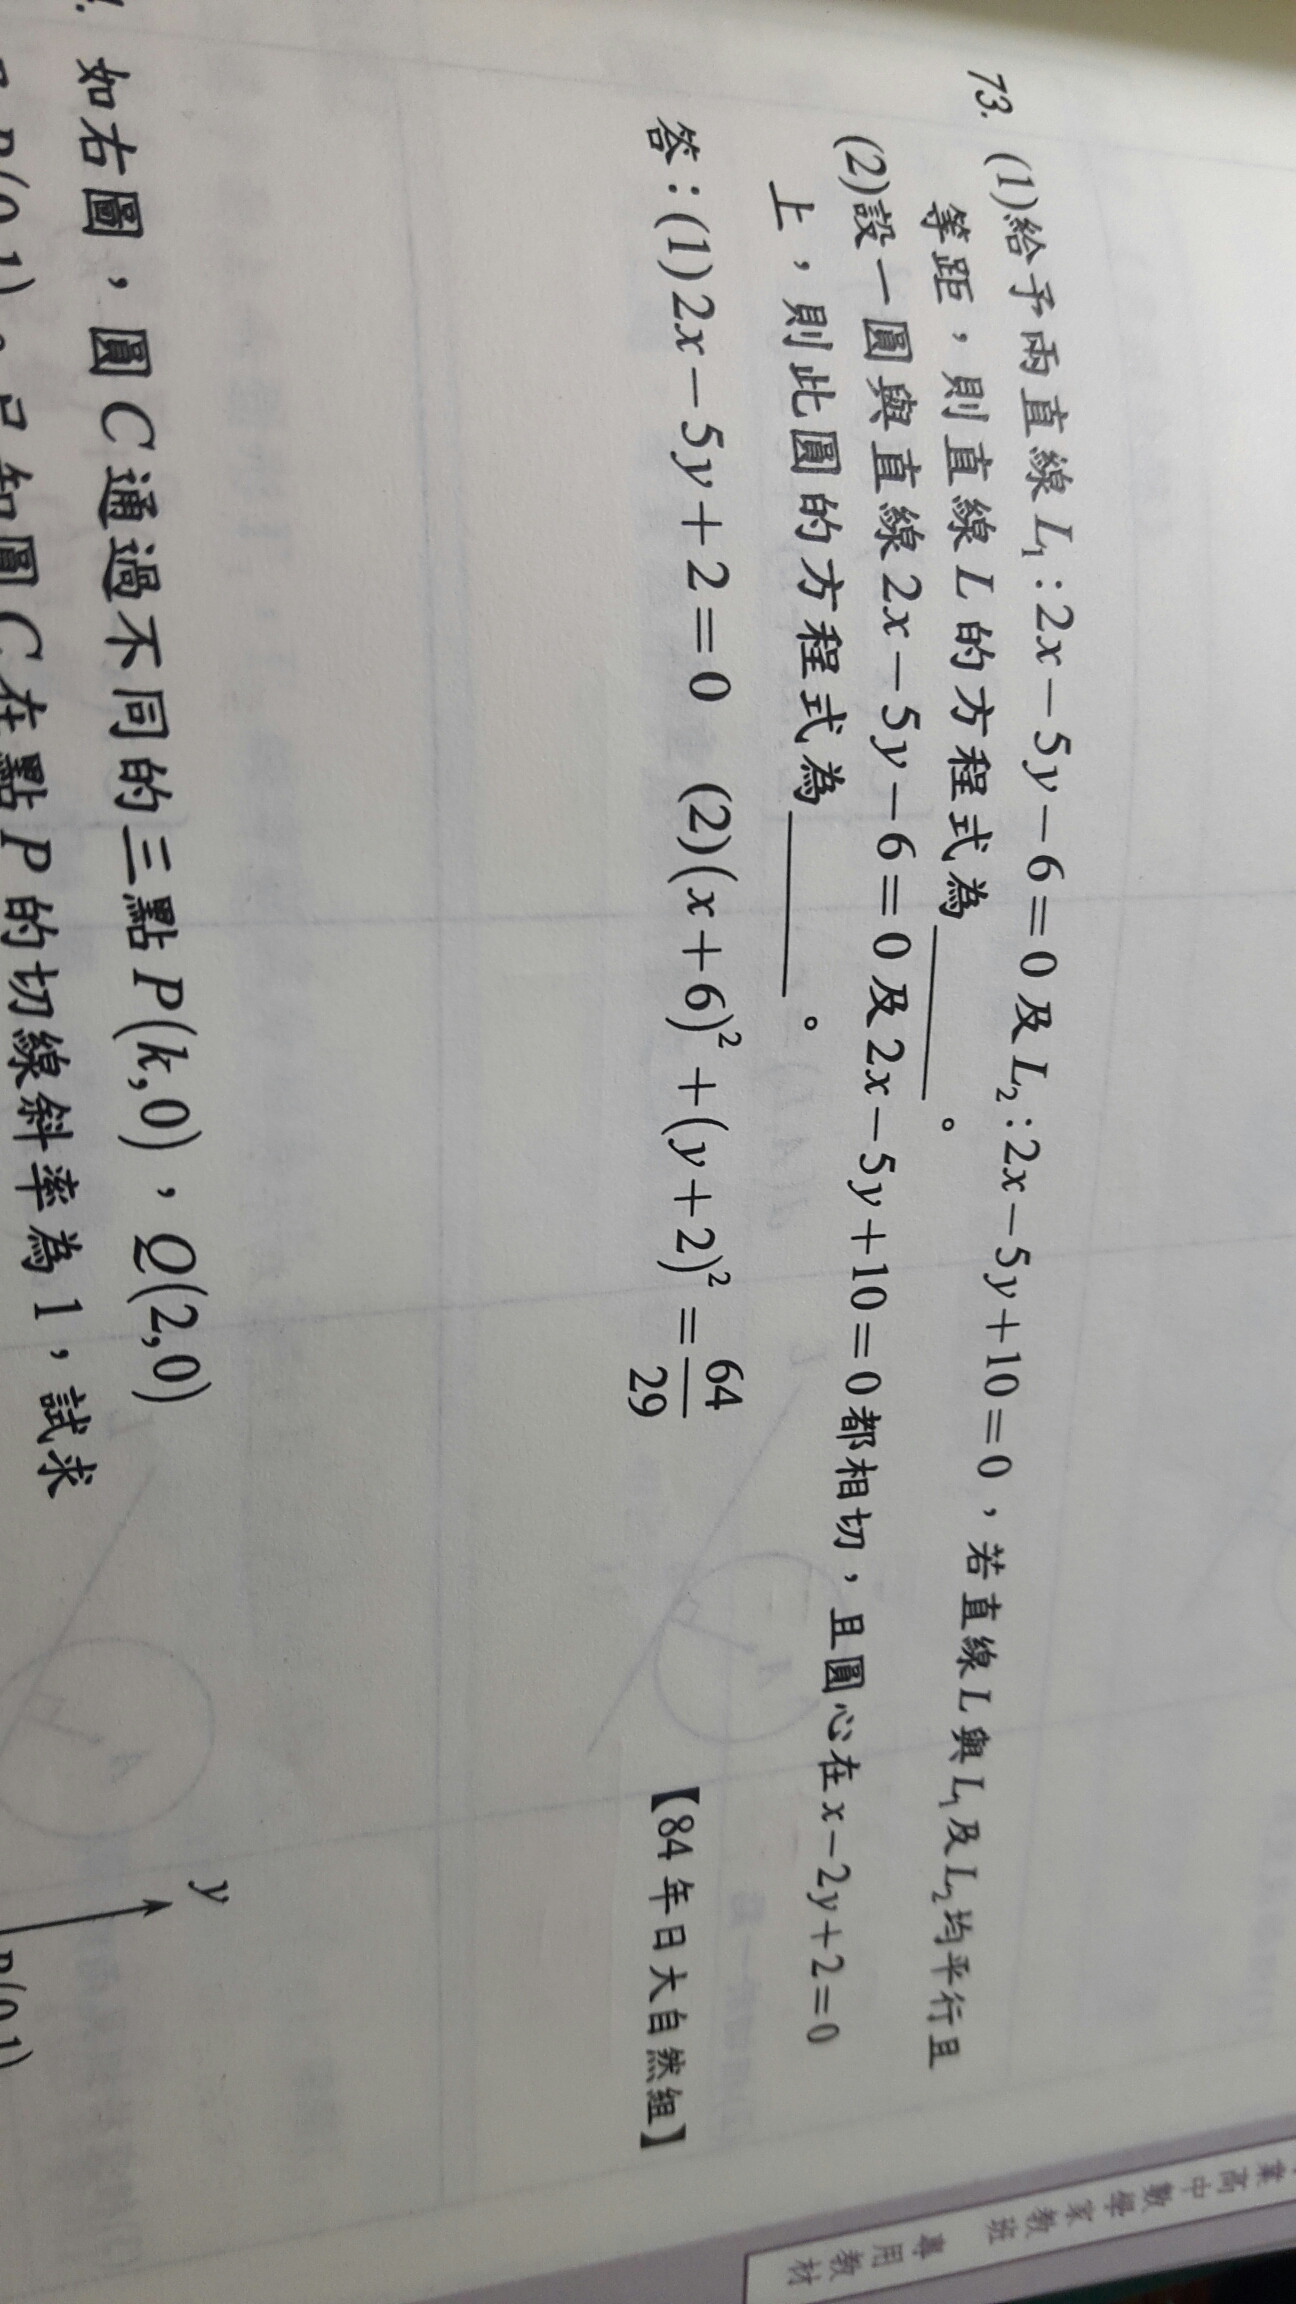 73. (1)給予兩直線 L₁:2x−5y−6=0 及 L₂:2x−5y+10=0，若直線 L 與 L₁ 及 L₂ 均平行且
等距，則直線 L 的方程式為______。
(2)設一圓與直線 2x−5y−6=0 及 2x−5y+10=0 都相切，且圓心在 x−2y+2=0
上，則此圓的方程式為______。
答：(1) 2x−5y+2=0 (2) (x+6)²+(y+2)²=64/29
【84年日大自然組】
如右圖，圓 C 通過不同的三點 P(k,0)，Q(2,0)
已知圓 C 在點 P 的切線斜率為 1，試求
y
業高中數學家教班 專用教材